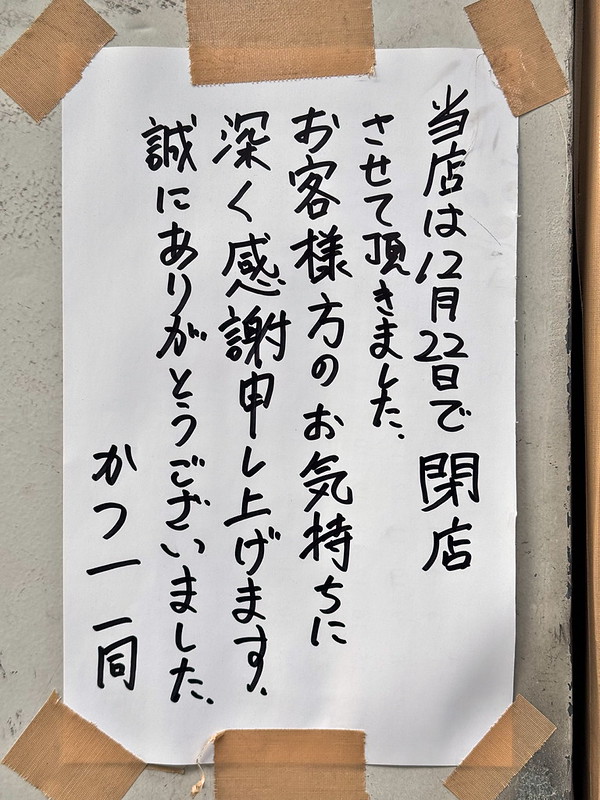 当店は12月22日で閉店
させて頂きました、
お客様方のお気持ちに
深く感謝申し上げます、
誠にありがとうございました、
かつ一 一同